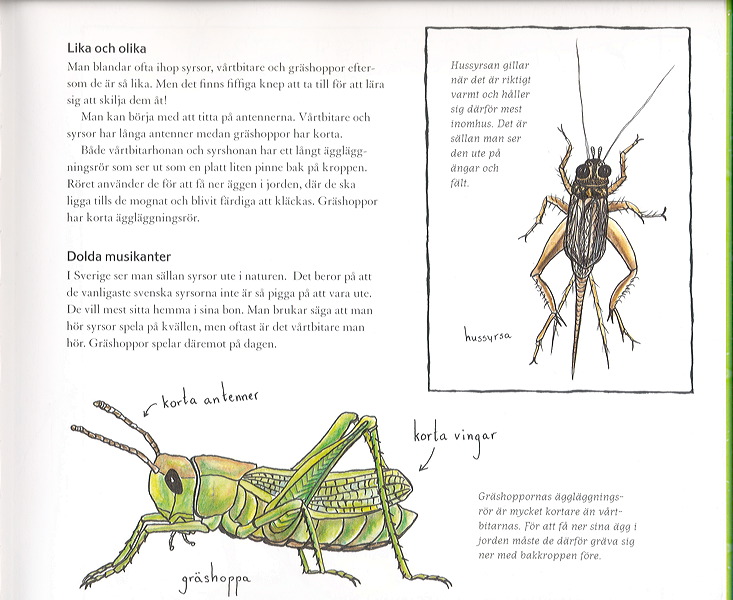 Lika och olika
Man blandar ofta ihop syrsor, vårtbitare och gräshoppor efter-
som de är så lika. Men det finns fiffiga knep att ta till för att lära
sig att skilja dem åt!
Man kan börja med att titta på antennerna. Vårtbitare och
syrsor har långa antenner medan gräshoppor har korta.
Både vårtbitarhonan och syrshonan har ett långt äggläggg-
ningsrör som ser ut som en platt liten pinne bak på kroppen.
Röret använder de för att få ner äggen i jorden, där de ska
ligga tills de mognat och blivit färdiga att kläckas. Gräshoppor
har korta äggläggningsrör.
Dolda musikanter
I Sverige ser man sällan syrsor ute i naturen. Det beror på att
de vanligaste svenska syrsorna inte är så pigga på att vara ute.
De vill mest sitta hemma i sina bon. Man brukar säga att man
hör syrsor spela på kvällen, men oftast är det vårtbitare man
hör. Gräshoppor spelar däremot på dagen.
Hussyrsan gillar
när det är riktigt
varmt och håller
sig därför mest
inomhus. Det är
sällan man ser
den ute på
ängar och
fält.
hussyrsa
korta antenner
korta vingar
Gräshoppornas äggläggnings-
rör är mycket kortare än vårt-
bitarnas. För att få ner sina ägg i
jorden måste de därför gräva sig
ner med bakkroppen före.
gräshoppa